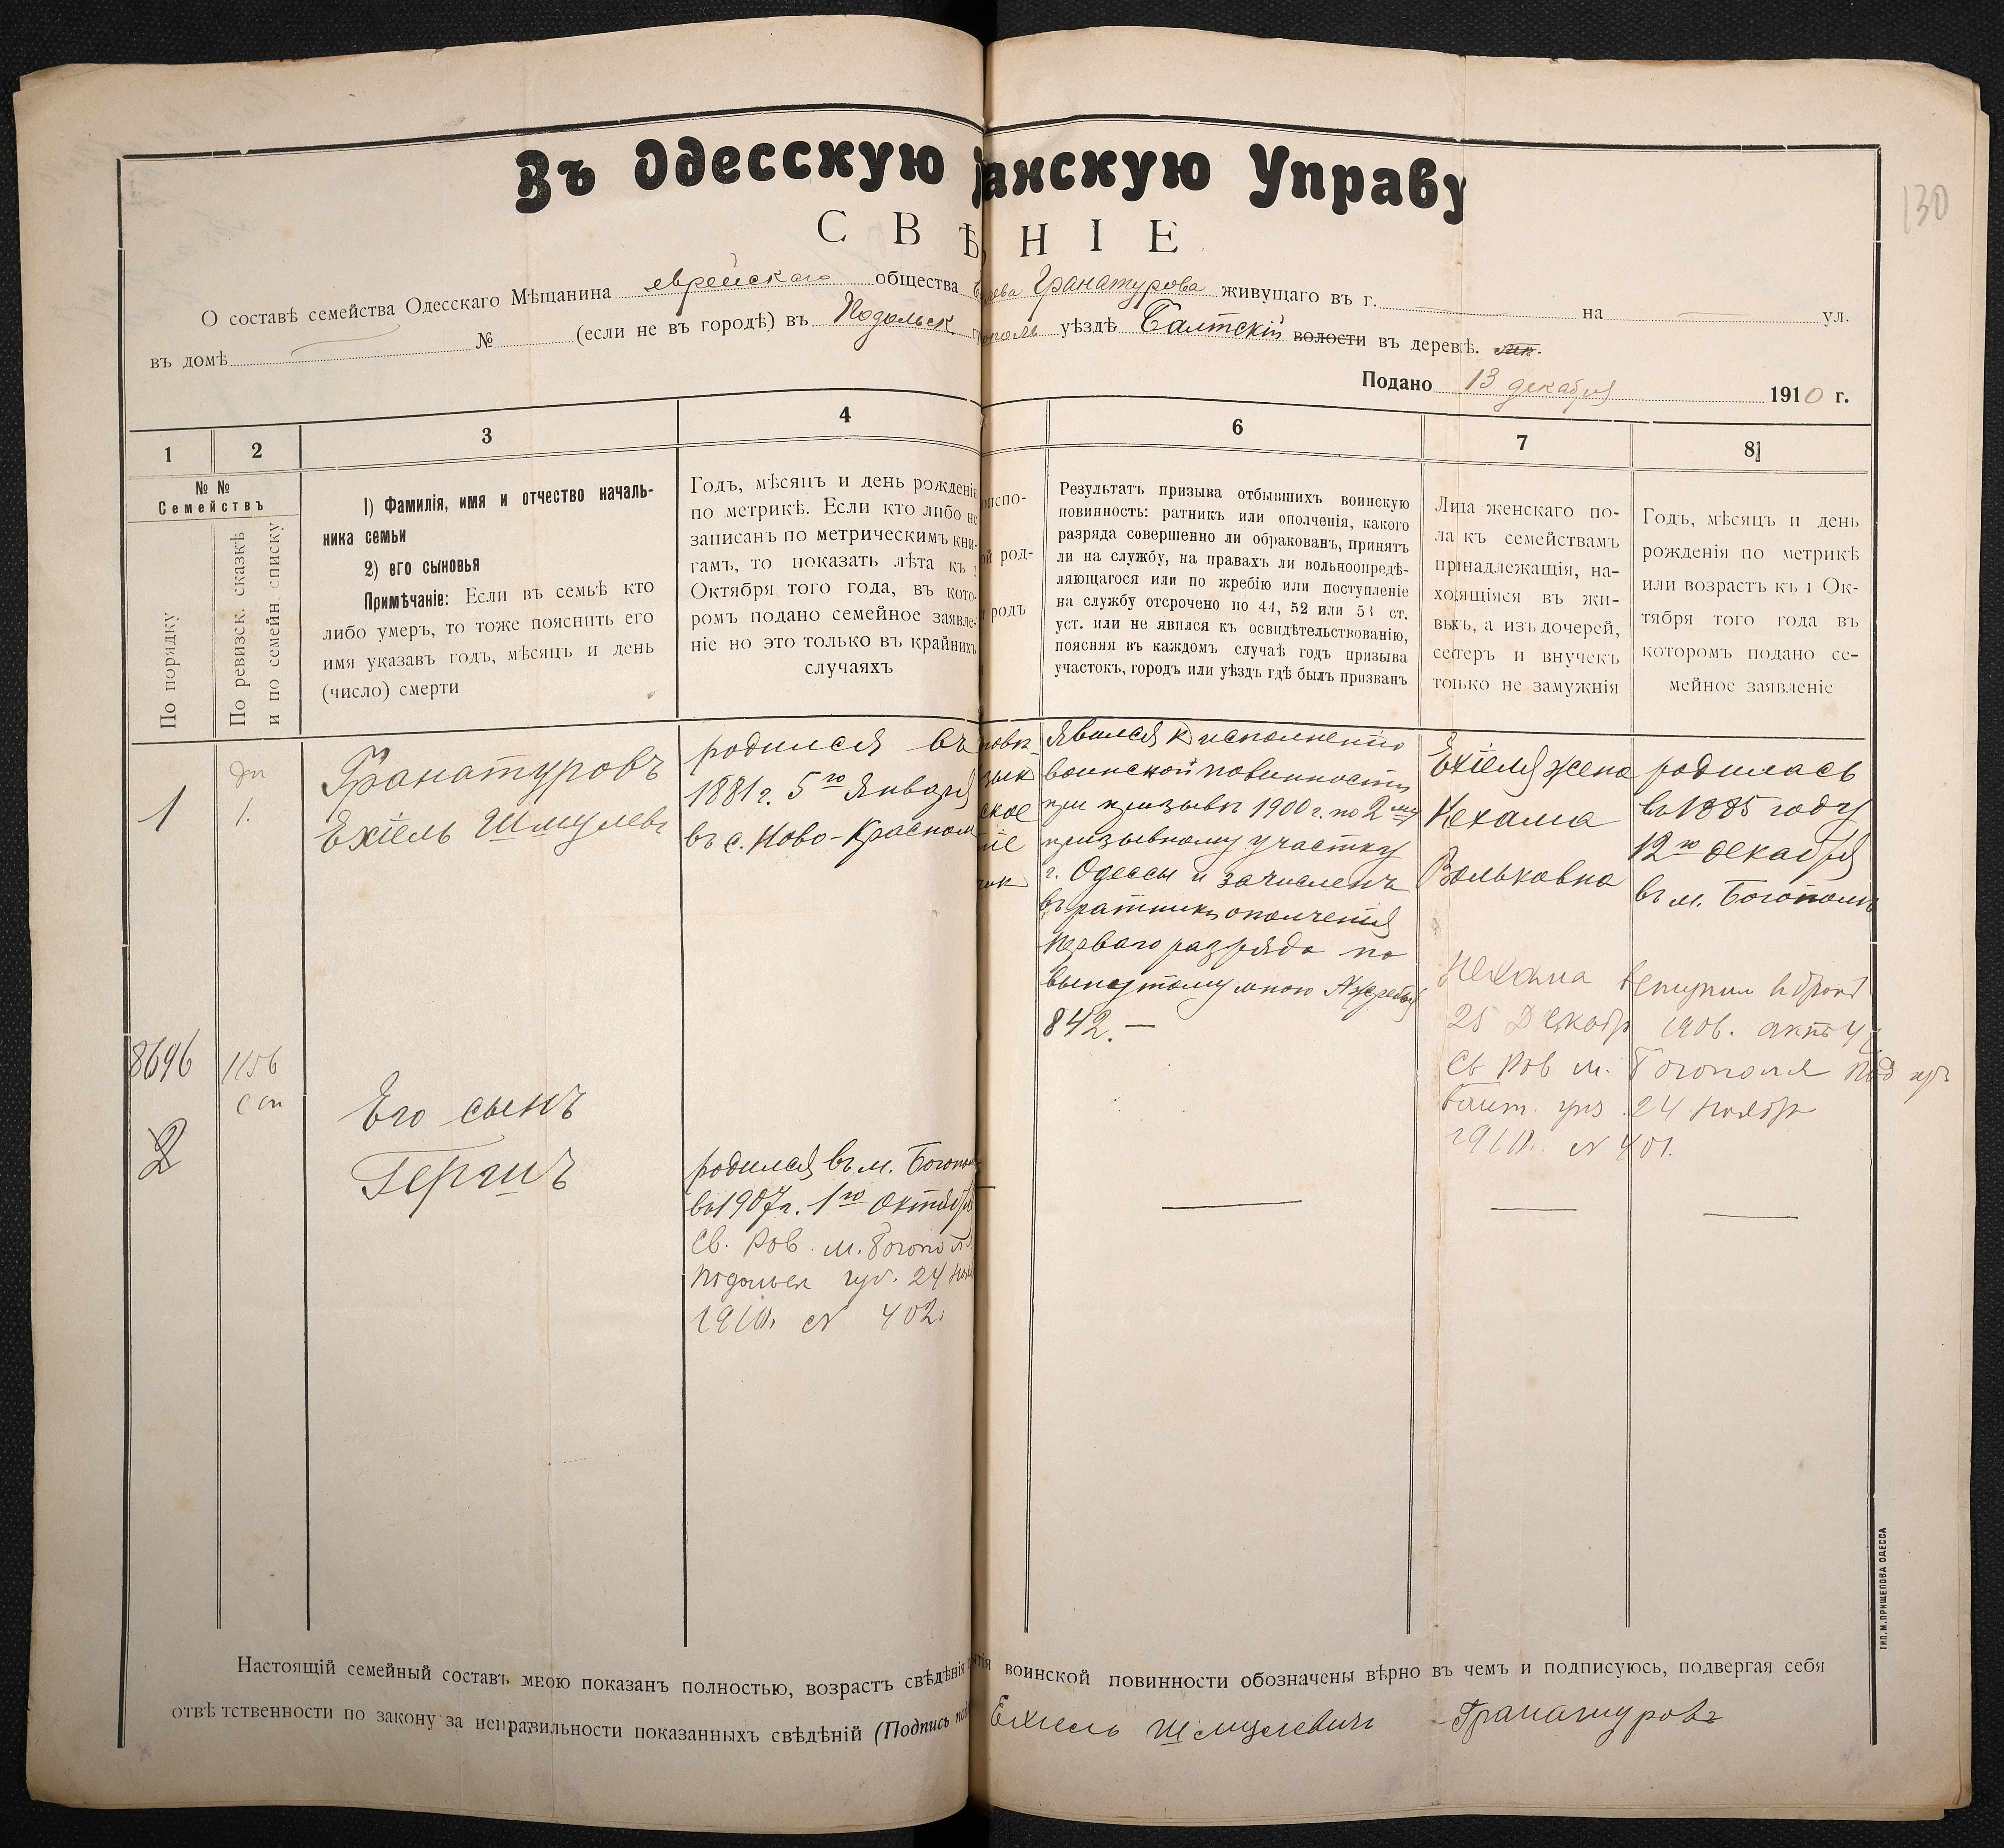 130
Въ Одесскую анскую Управу
СВѢ НІЕ
О составѣ семейства Одесскаго Мѣщанина еврейскаго общества Гранатурова живущаго въ г. на ул.
въ домѣ № (если не въ городѣ) въ Подольск уѣздѣ Балтскій волости въ деревѣ.
Подано 13 декабря 1910 г.
1
2
3
4
6
7
8
№ №
Семействъ
По порядку
По ревизск. сказкѣ
и по семейн списку
1) Фамилія, имя и отчество началь-
ника семьи
2) его сыновья
Примѣчаніе: Если въ семьѣ кто
либо умеръ, то тоже пояснить его
имя указавъ годъ, мѣсяцъ и день
(число) смерти
Годъ, мѣсяцъ и день рожденія
по метрикѣ. Если кто либо не
записанъ по метрическимъ кни-
гамъ, то показать лѣта къ 1
Октября того года, въ кото-
ромъ подано семейное заявле-
ніе но это только въ крайнихъ
случаяхъ
испо-
ой род-
родъ
Результатъ призыва отбывшихъ воинскую
повинность: ратникъ или ополченія, какого
разряда совершенно ли обракованъ, принятъ
ли на службу, на правахъ ли вольноопредѣ-
ляющагося или по жребію или поступленіе
на службу отсрочено по 44, 52 или 53 ст.
уст. или не явился къ освидѣтельствованію,
поясняя въ каждомъ случаѣ годъ призыва
участокъ, городъ или уѣздъ гдѣ былъ призванъ
Лица женскаго по-
ла къ семействамъ
принадлежащія, на-
ходящіяся въ жи-
выхъ, а изъ дочерей,
сестеръ и внучекъ
только не замужнія
Годъ, мѣсяцъ и день
рожденія по метрикѣ
или возрастъ къ 1 Ок-
тября того года въ
которомъ подано се-
мейное заявленіе
1
1.
Гранатуровъ
Ехіель Шмулевъ
родился въ
1881 г. 5го Января
въ с. Ново-Красном
ское
ніе
явился к исполненію
воинской повинности
при призывѣ 1900 г. по 2му
призывному участку
г. Одессы и зачисленъ
въ ратники ополчения
перваго разряда по
вынутому мною Жребью
842. —
Ехіеля жена
Нехама
Вольковна
родилась
въ 1885 году
12го декабря
въ м. Богополь
Нехама вступил в бракъ
25 Декабр 1906. актъ
Св Рав м. Богополя Под губ
Балт. уѣз. 24 Ноябр
1910. N 401.
8696
1156
2
Его сынъ
Гершъ
родился въ м. Богопол
въ 1907 г. 1го Октября
Св. Рав. м. Богополя
Подольск губ. 24 Ноя
1910. N 402.
Настоящій семейный составъ мною показанъ полностью, возрастъ свѣдѣнія тія воинской повинности обозначены вѣрно въ чемъ и подписуюсь, подвергая себя
отвѣтственности по закону за неправильности показанныхъ свѣдѣній (Подпись Ехиель Шмулевичъ Гранатуровъ
ТИП. М. ПРИЩЕПОВА ОДЕССА